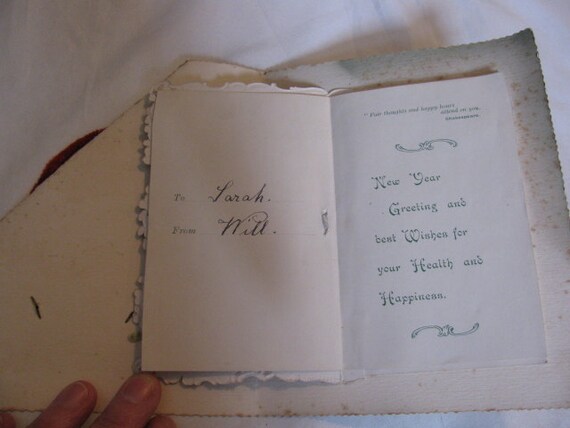 To Sarah.
From Will.
"Fair thoughts and happy hours
attend on you.
Shakespeare.
New Year
Greeting and
best Wishes for
your Health and
Happiness.